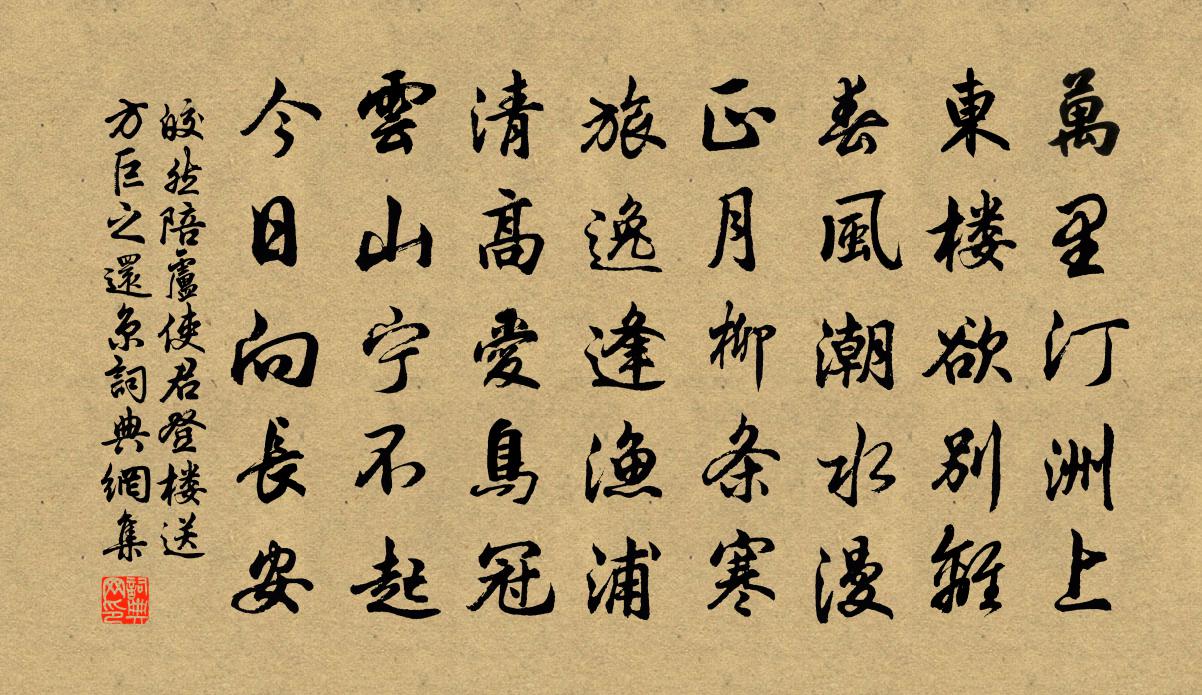 萬里汀洲上
東楼欲别離
春風潮水漫
正月柳条寒
旅逸逢漁浦
清高愛鳥冠
雲山宁不起
今日向長安
皎然陪盧使君登楼送
方巨之還京詞典網集
詞典网印